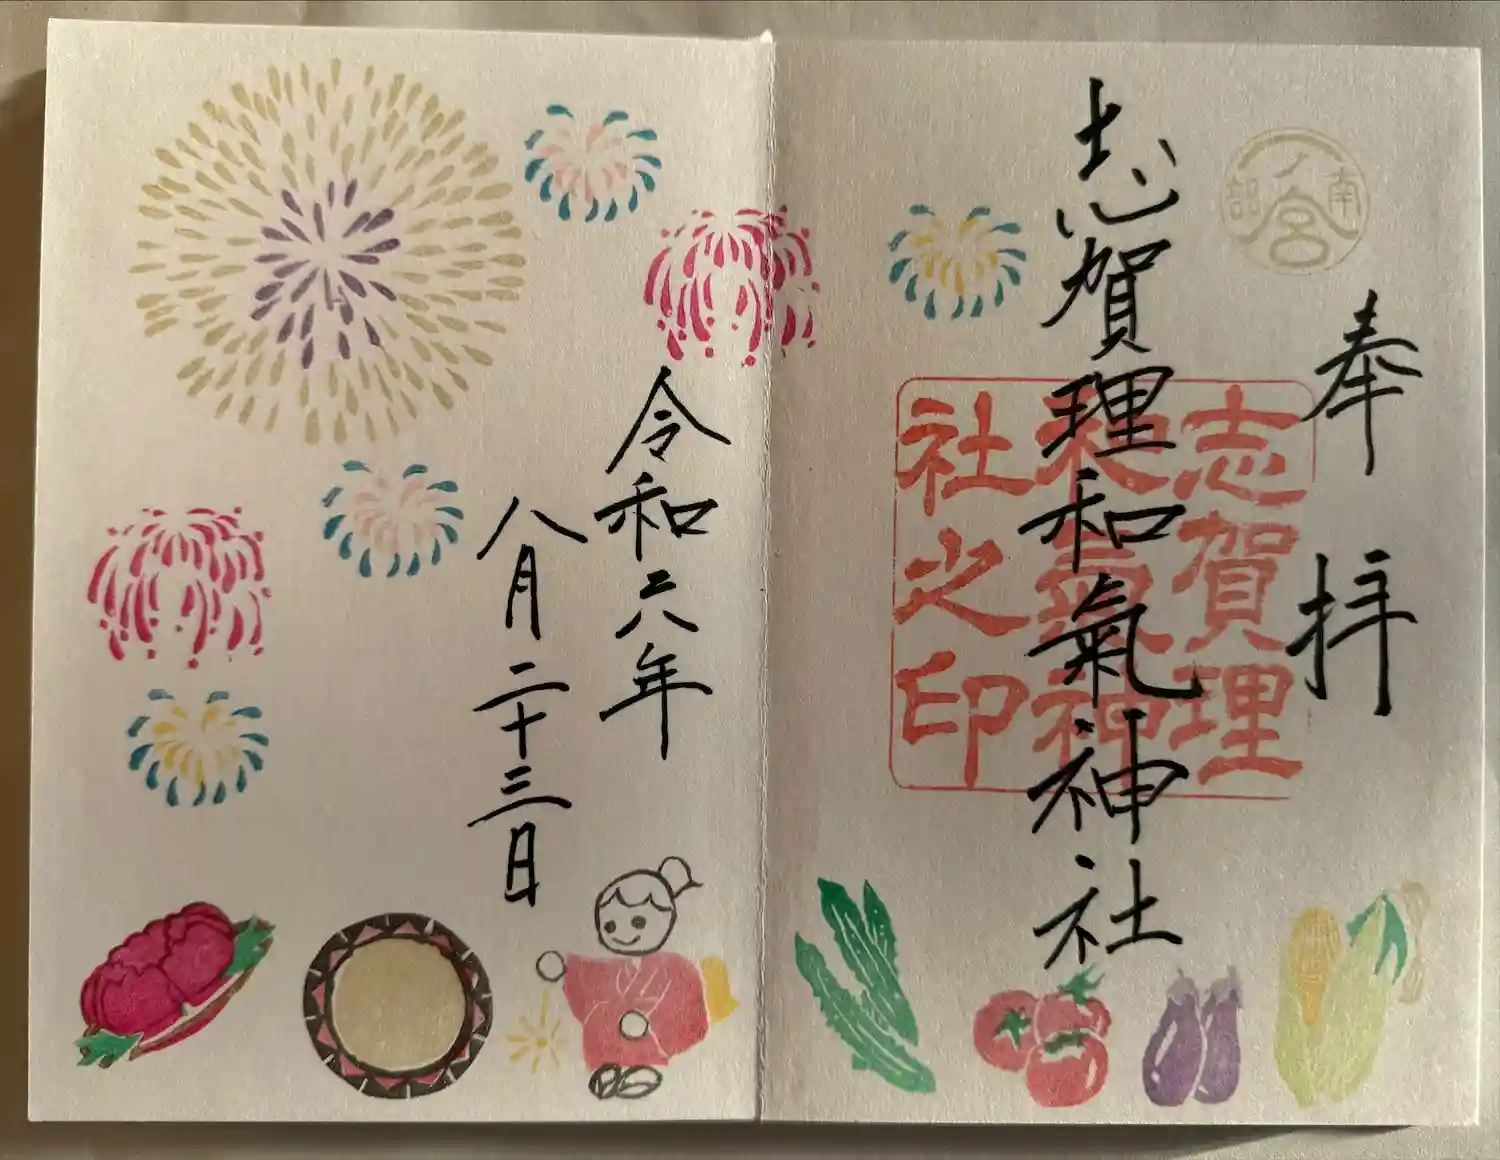 奉拝
南部一ノ宮
志賀理和氣神社
志賀理
和氣神
社之印
令和六年
八月二十三日